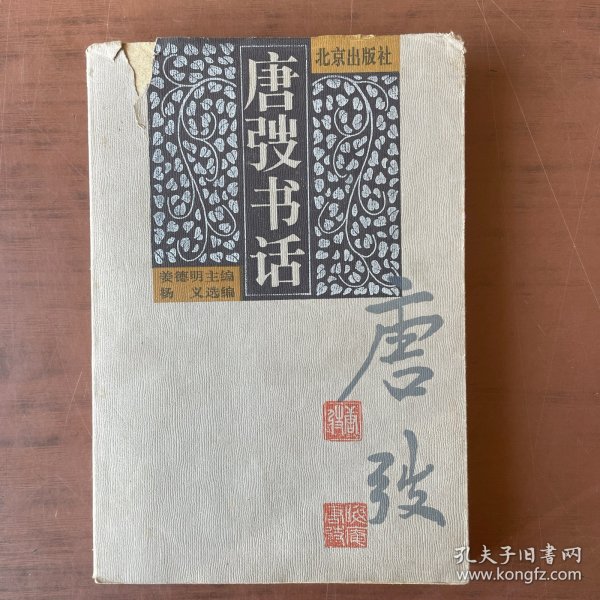 北京出版社
唐弢书话
姜德明主编
杨 义选编
唐弢
唐弢
孔夫子旧书网
www.kongfz.com